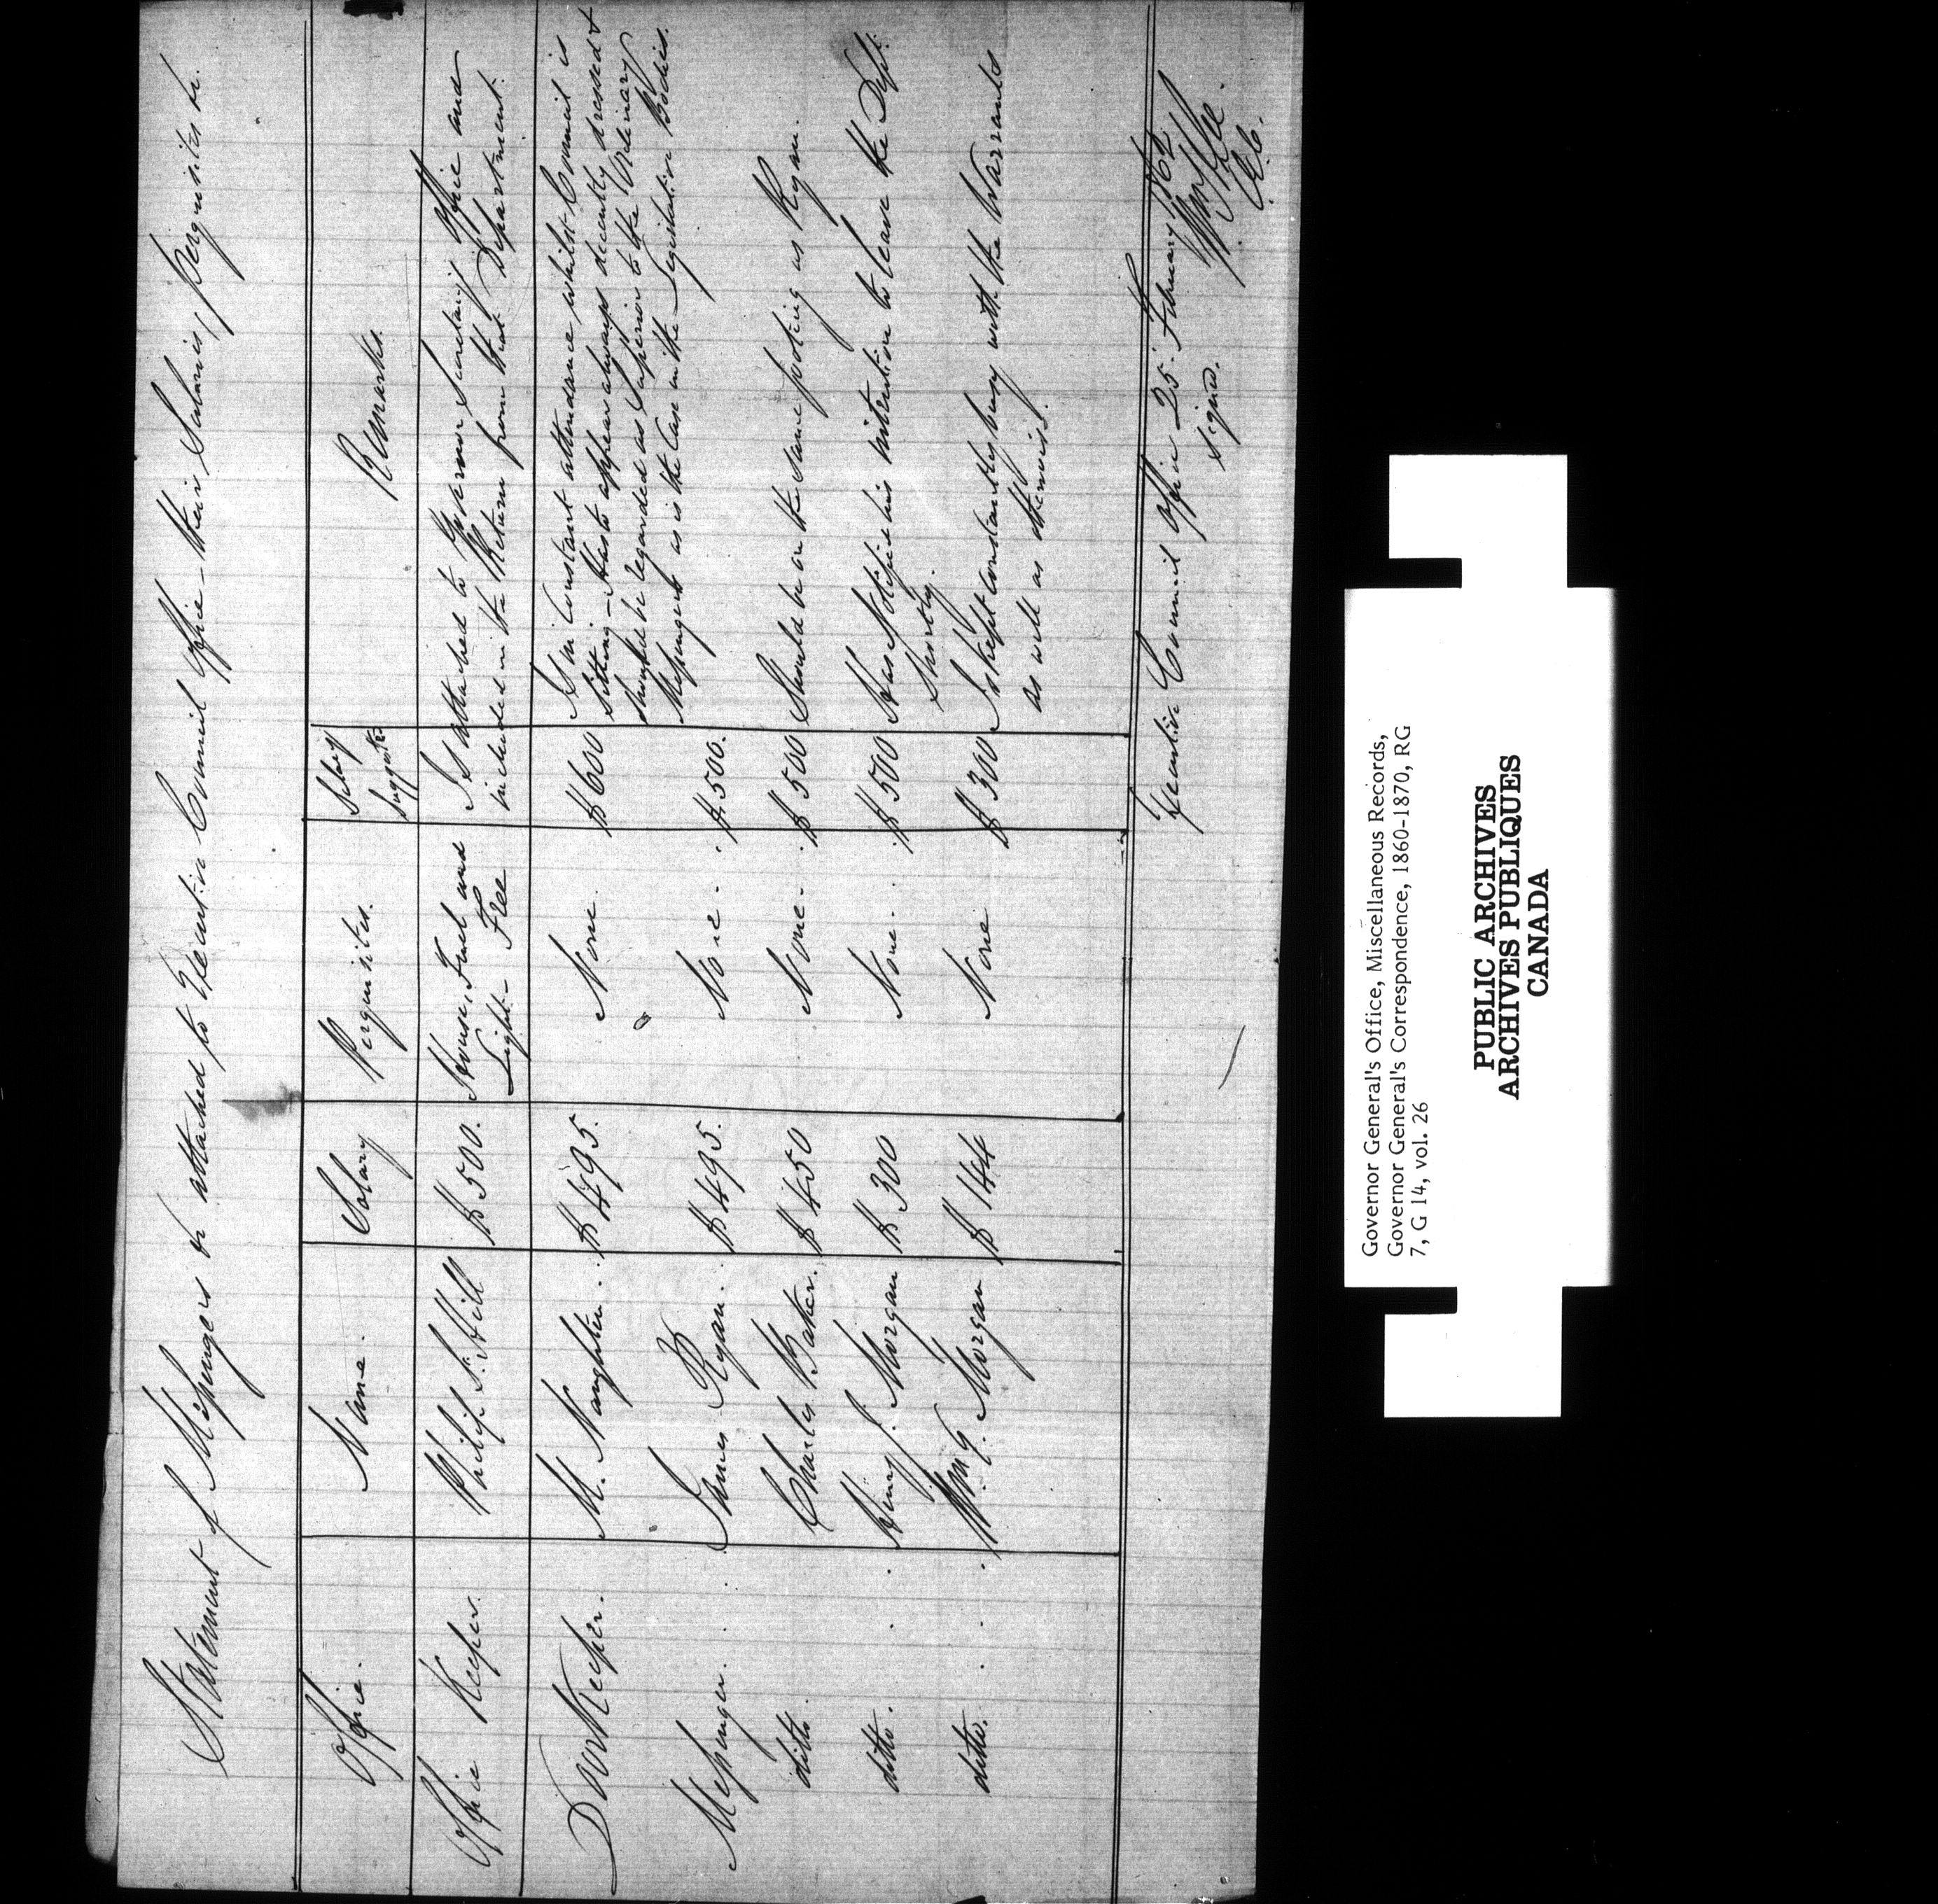 Statement of Messengers &c attached to Executive Council Office - their Salaries, perquisites &c.
Office. Name. Salary Perquisites. Salary suggested Remarks.
Office Keeper. Philip S. Hill $500. House, Fuel and Is attached to Governor Secretary Office and
Light - Free included in the Return from that Department.
DoorKeeper. M. Naughten. $495. None. $600 Is in Constant attendance whilst Council is
Sitting - Has to appear always decently dressed &
should be regarded as Superior to the Ordinary
Messengers as is the Case in the Legislative Bodies.
Messenger. James Ryan. $495. None. $500.
ditto. Charles Baker. $450 None. $500 Should be on the same footing as Ryan.
ditto. Henry J. Morgan $300 None. $500 Has Notified his intention to leave the Dept.
Shortly.
ditto. Wm G. Morgan $144 None $300 Is kept constantly busy with the Warrants
as well as otherwise.
Executive Council Office 25 February 1862
signed. Wm H Lee
C.E.C.
Governor General's Office, Miscellaneous Records,
Governor General's Correspondence, 1860-1870, RG
7, G 14, vol. 26
PUBLIC ARCHIVES
ARCHIVES PUBLIQUES
CANADA